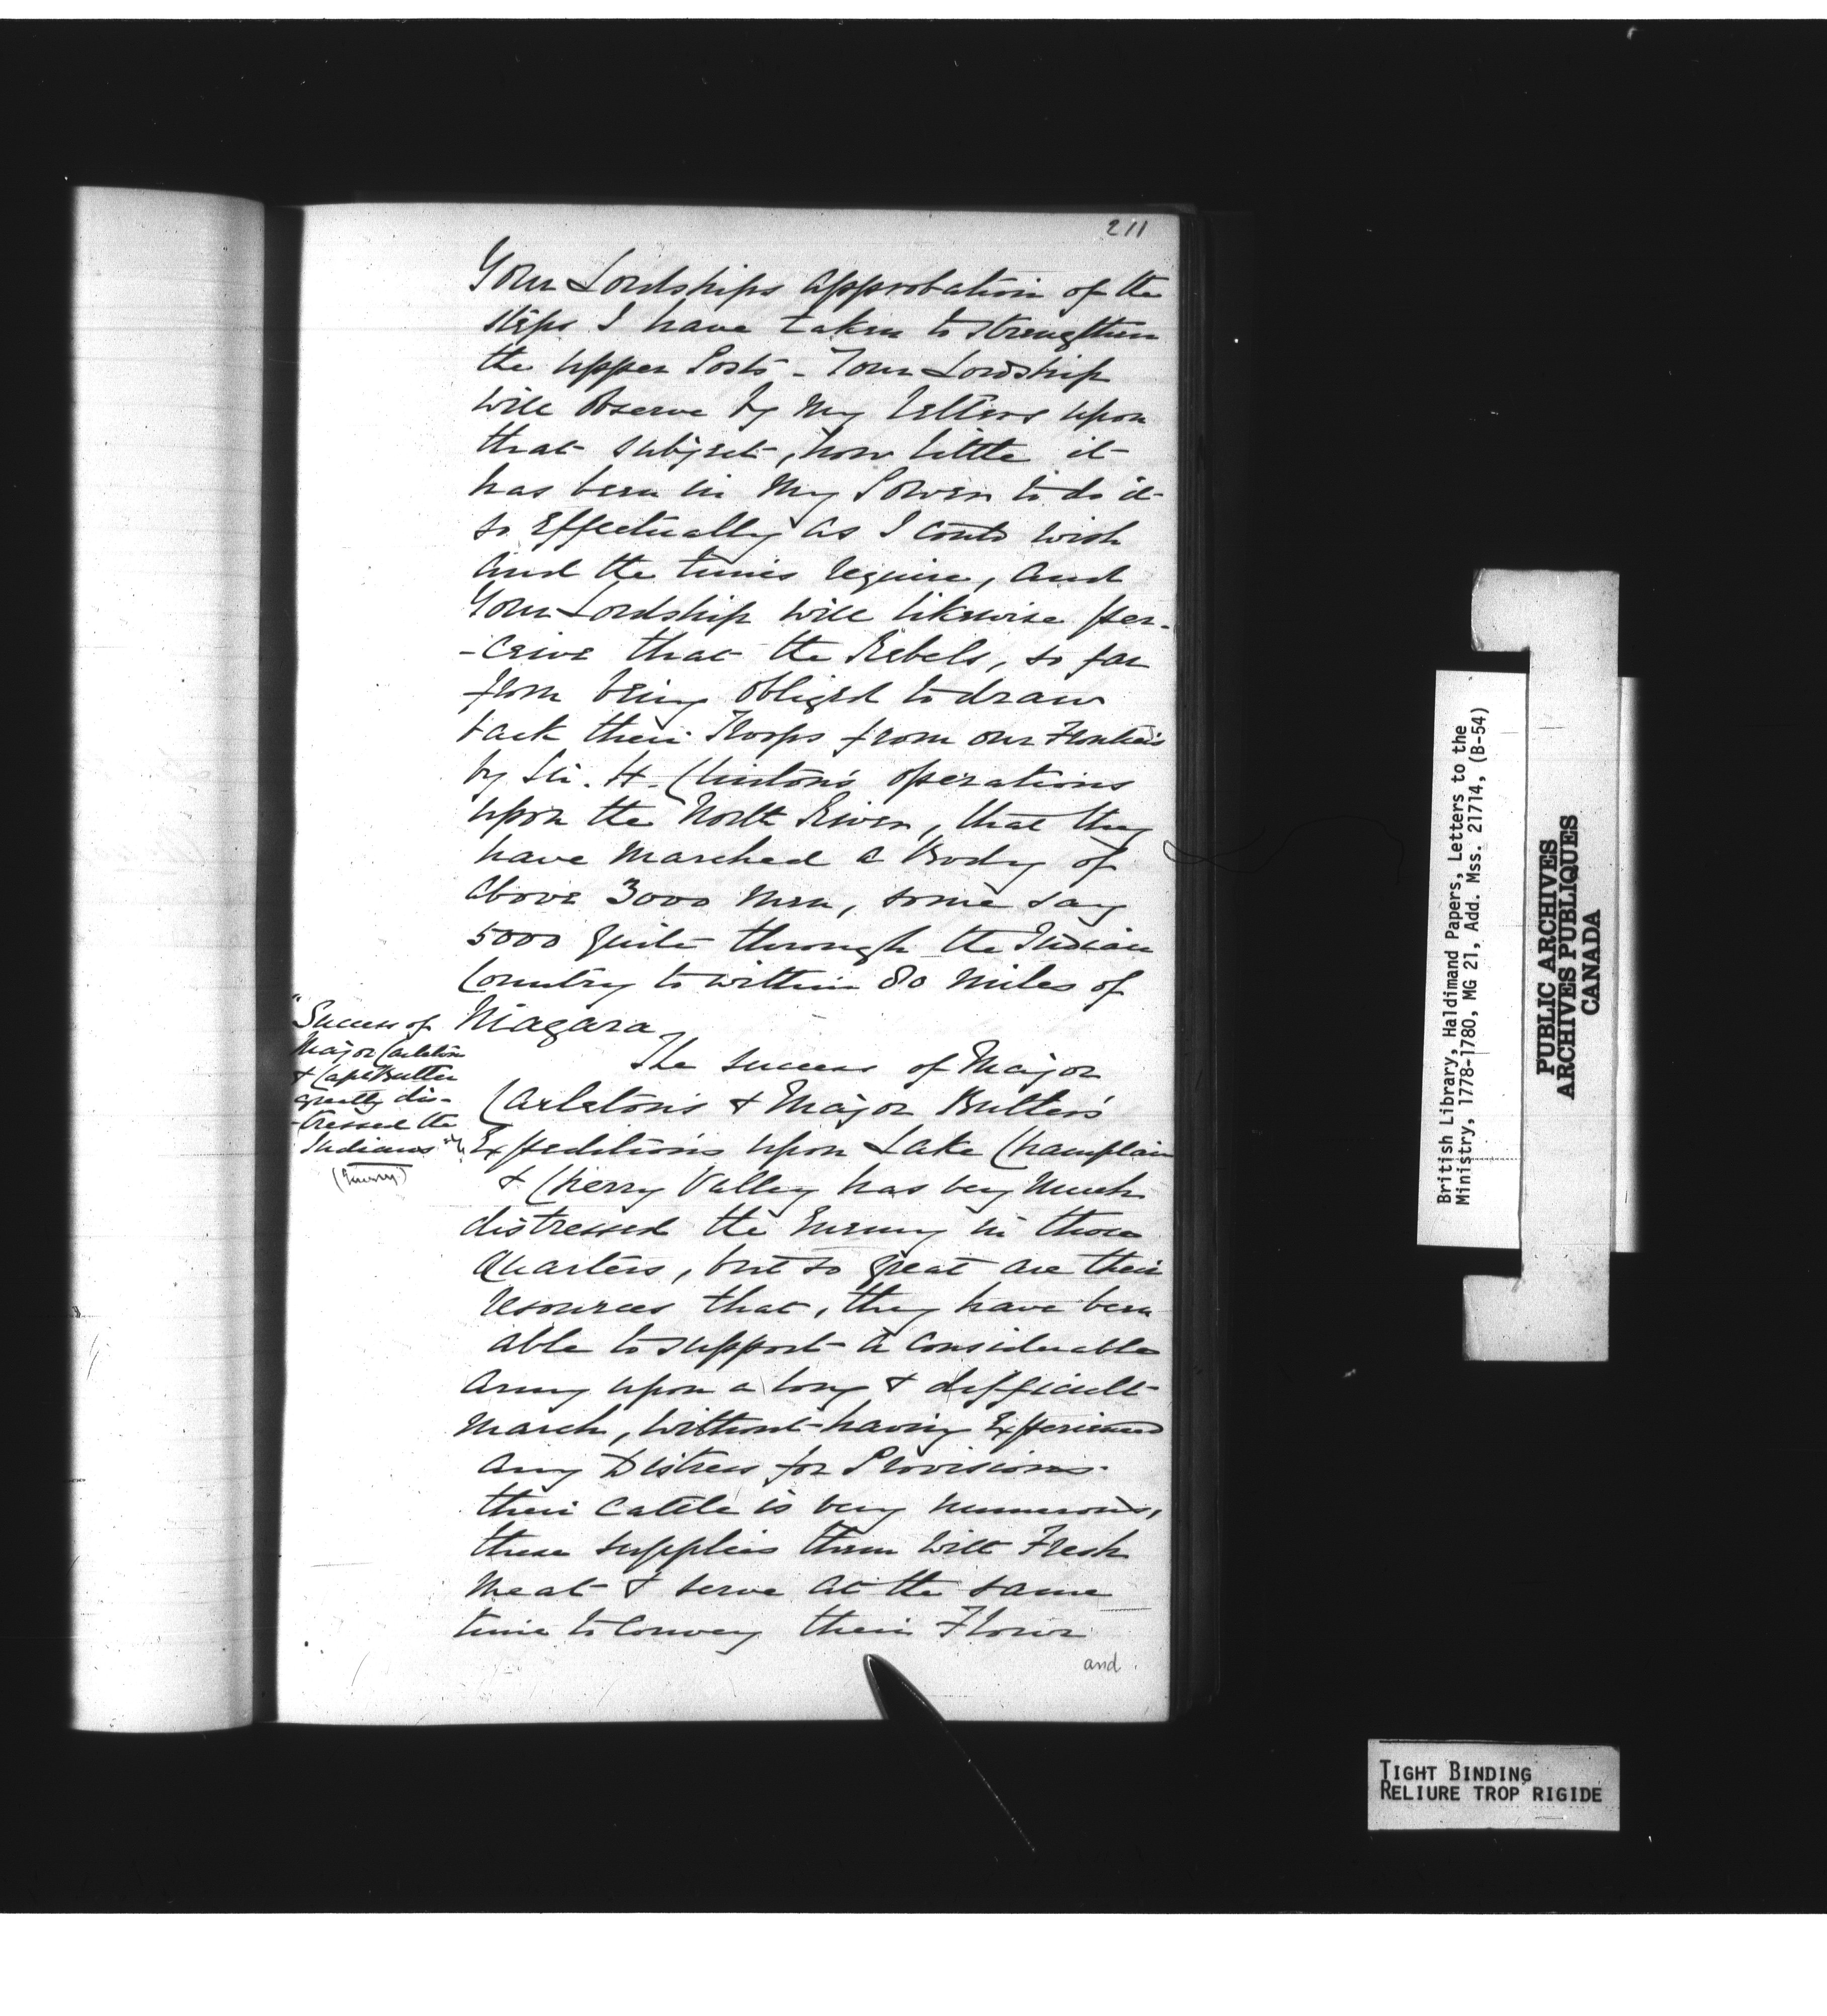 211
Your Lordships approbation of the
steps I have taken to strengthen
the upper Posts - Your Lordship
will observe by My letters upon
that subject, how little it
has been in My Power to do it
so Effectually as I could wish
And the times require, And
Your Lordship will likewise per-
-ceive that the Rebels, so far
from being obliged to draw
back their Troops from our Frontiers
by Sir. H. Clinton's operations
upon the North River, that they
have marched a Body of
above 3000 Men, some say
5000 quite through the Indian
Country to within 80 Miles of
Niagara
"Success of
Major Carleton
& Capt Butler
greatly dis-
-tressed the
Indians"
The success of Major
Carleton's & Major Butler's
Expeditions upon Lake Champlain
& Cherry Valley has very Much
distressed the Enemy in those
Quarters, but so great are their
resources that, they have been
able to support a considerable
Army upon a long & difficult
March, without having Experienced
Any Distress for Provisions.
their Cattle is very numerous,
these supplies them with Fresh
Meat & serve at the same
time to Convey their Flour
and
British Library, Haldimand Papers, Letters to the
Ministry, 1778-1780, MG 21, Add. Mss. 21714, (B-54)
PUBLIC ARCHIVES
ARCHIVES PUBLIQUES
CANADA
TIGHT BINDING
RELIURE TROP RIGIDE